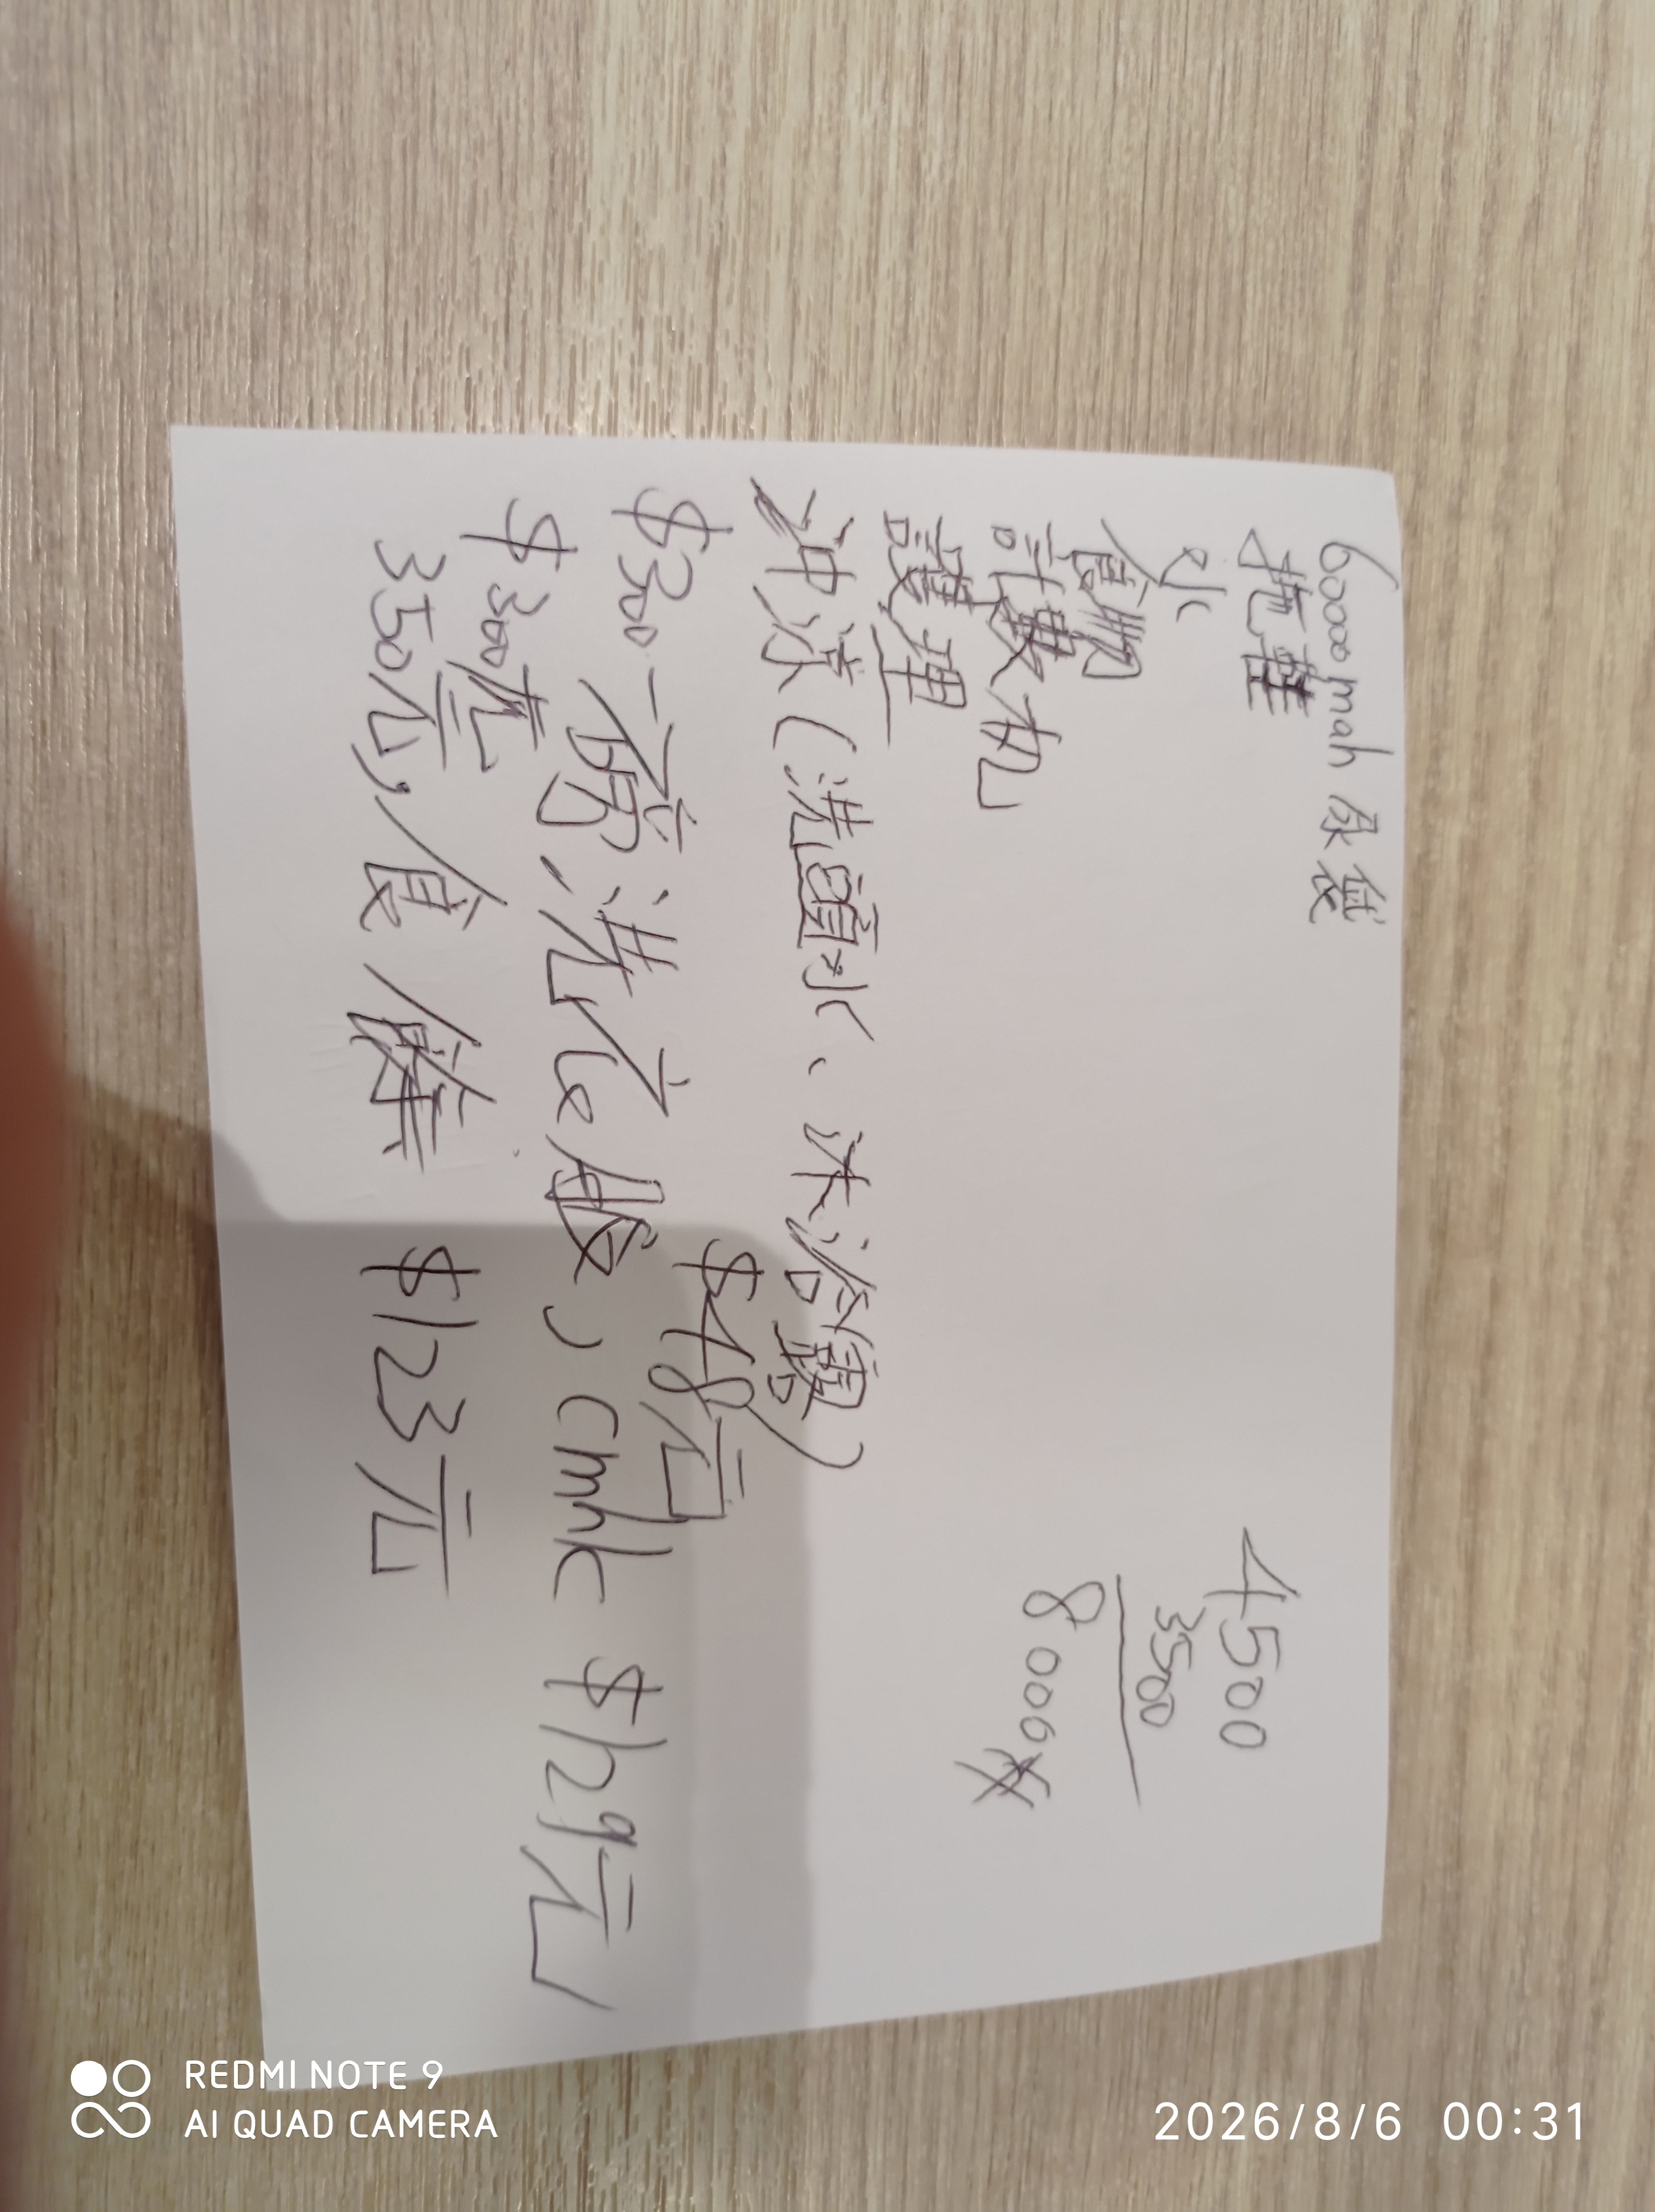 60000mah 尿袋
拖鞋
水
食物
計數机
護理
冲凉(洗頭水、沐浴露)
$48元
$300一 碗,洗衣服,cmhk $129元
$300
350元,食餘 $123元
4500
3500
8000
REDMI NOTE 9
AI QUAD CAMERA
2026/8/6 00:31